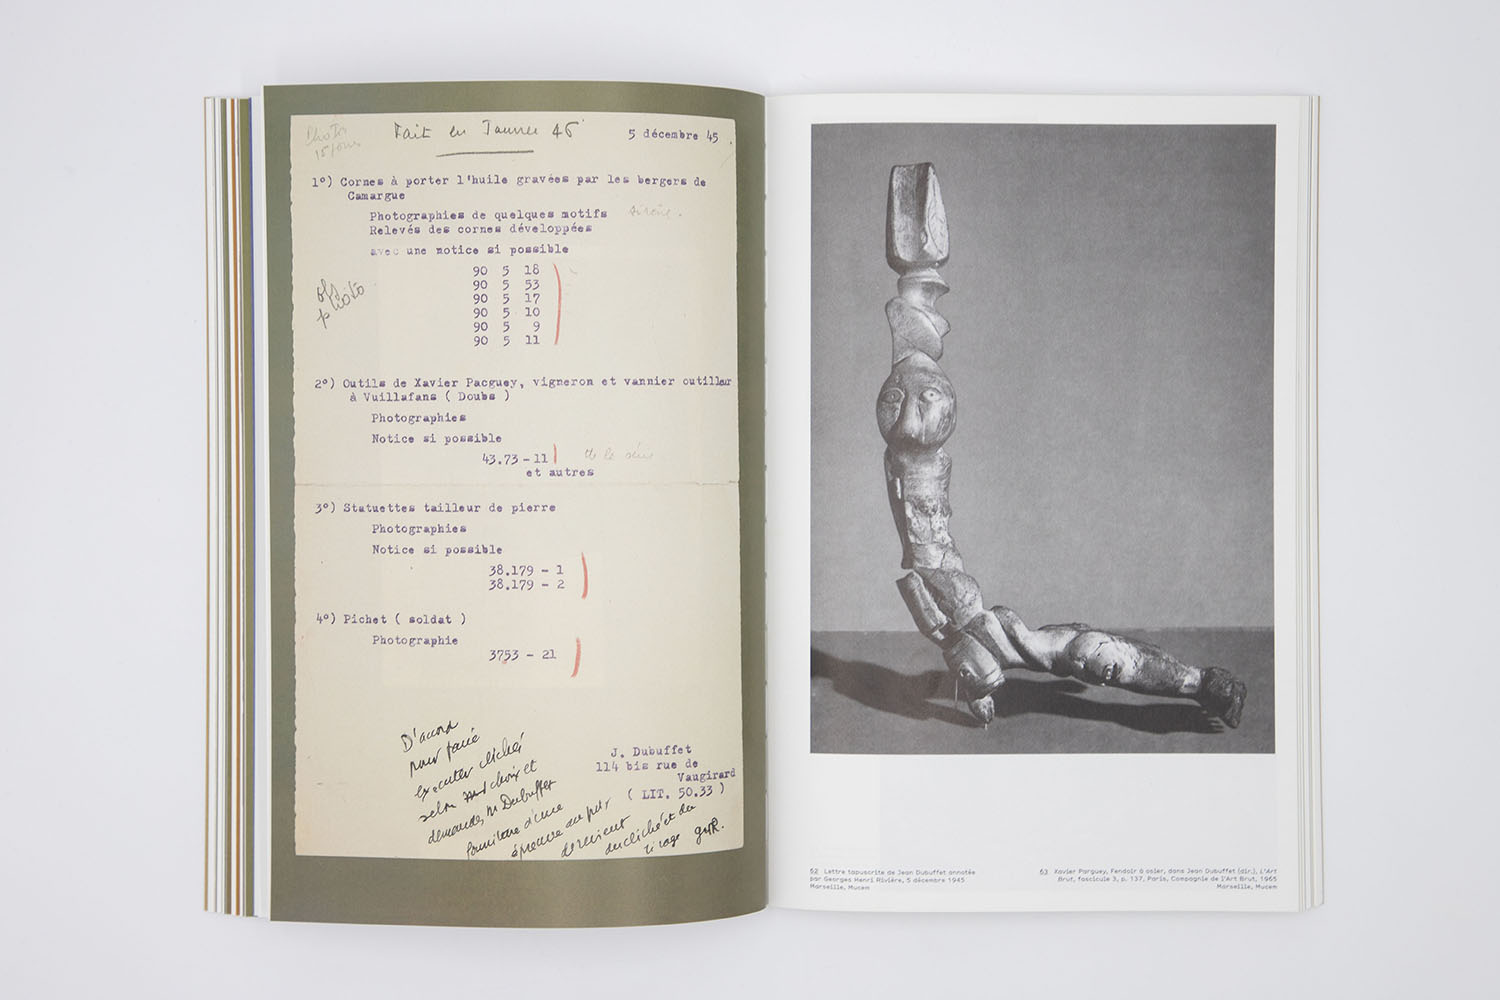 Photos
Fait en Janvier 46
5 décembre 45
1°) Cornes à porter l'huile gravées par les bergers de
Camargue
Photographies de quelques motifs
Relevés des cornes développées
avec une notice si possible
90 5 18
90 5 53
90 5 17
90 5 10
90 5 9
90 5 11
photo
2°) Outils de Xavier Pacguey, vigneron et vannier outilleur
à Vuillafans ( Doubs )
Photographies
Notice si possible
43.73 - 11
et autres
3°) Statuettes tailleur de pierre
Photographies
Notice si possible
38.179 - 1
38.179 - 2
4°) Pichet ( soldat )
Photographie
3753 - 21
D'accord
pour faire
exécuter clichés
selon choix et
demande, M. Dubuffet
fourniture d'une
épreuve au prix
de revient
du cliché et du
tirage GHR.
J. Dubuffet
114 bis rue de
Vaugirard
( LIT. 50.33 )
62 Lettre tapuscrite de Jean Dubuffet annotée
par Georges Henri Rivière, 5 décembre 1945
Marseille, Mucem
63 Xavier Parguey, Fendoir à osier, dans Jean Dubuffet (dir.), L'Art
Brut, fascicule 3, p. 137, Paris, Compagnie de l'Art Brut, 1965
Marseille, Mucem